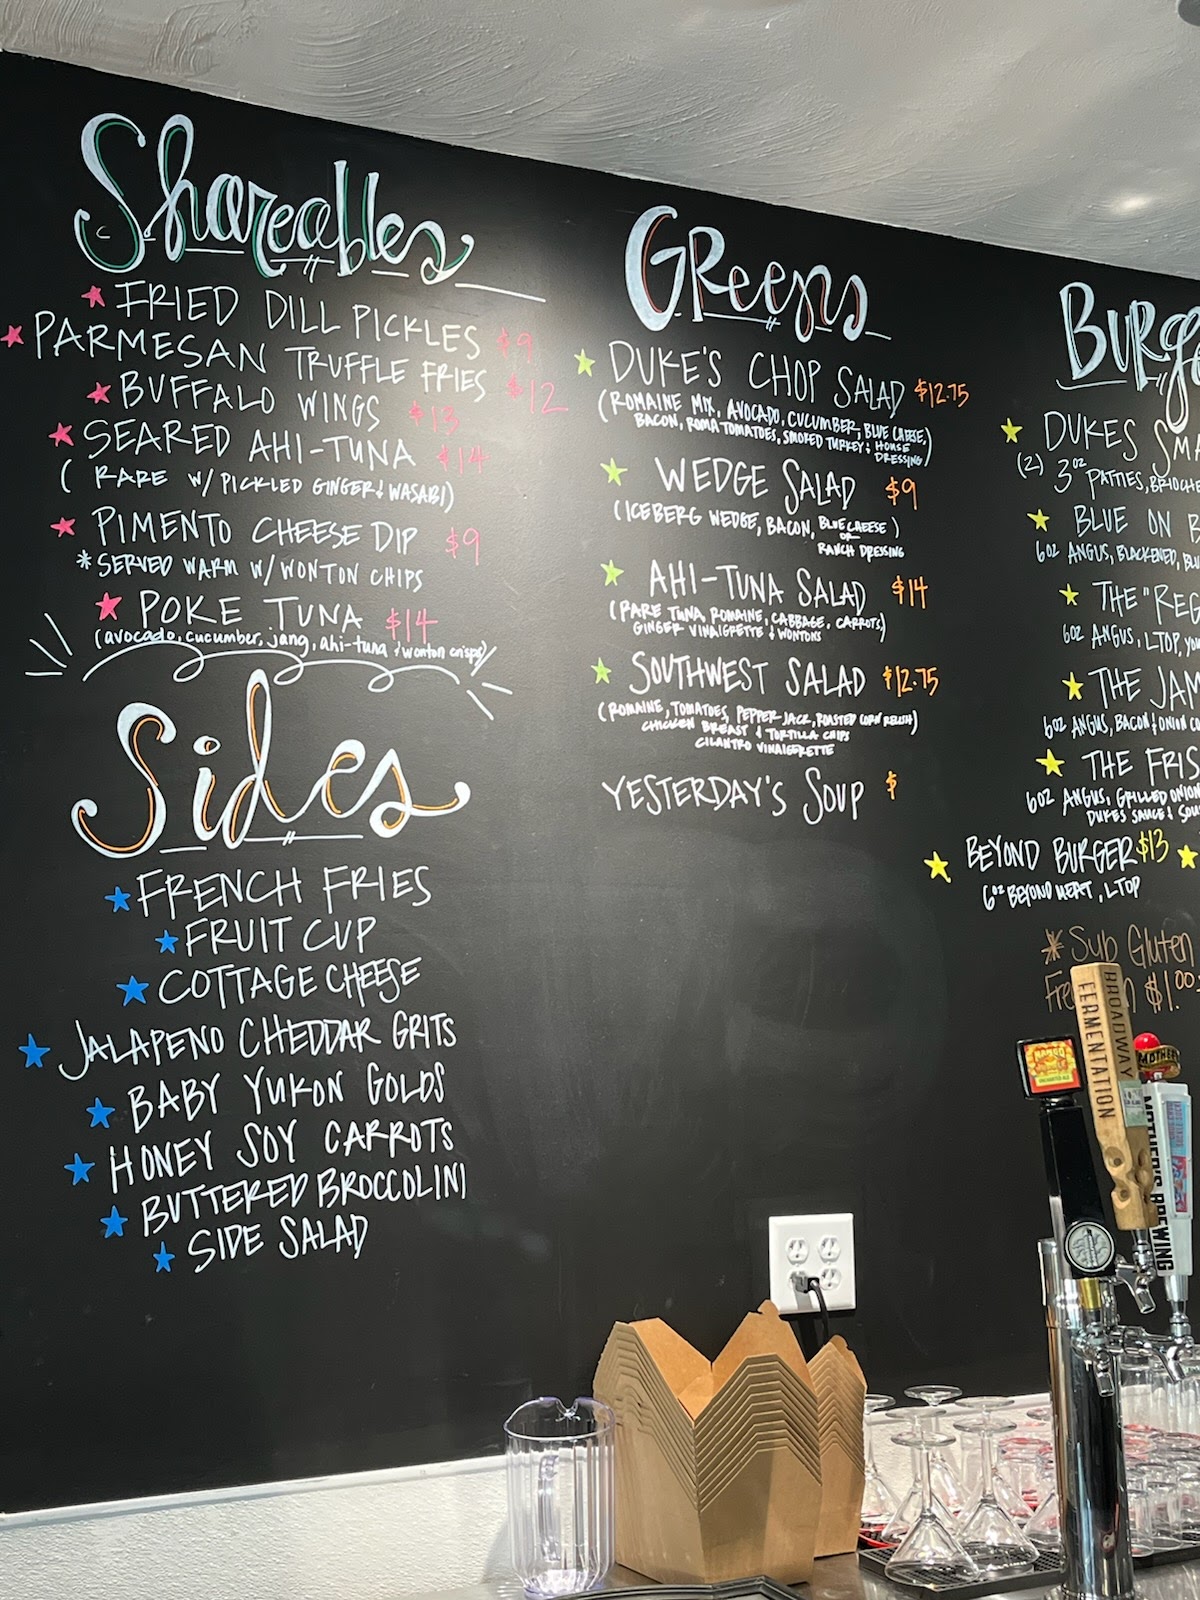 Shareables
FRIED DILL PICKLES $9
PARMESAN TRUFFLE FRIES $12
BUFFALO WINGS $13
SEARED AHI-TUNA $14
( RARE W/ PICKLED GINGER & WASABI)
PIMENTO CHEESE DIP $9
*SERVED WARM W/ WONTON CHIPS
POKE TUNA $14
(avocado, cucumber, jang, ahi-tuna & wonton crisps)
Sides
FRENCH FRIES
FRUIT CUP
COTTAGE CHEESE
JALAPENO CHEDDAR GRITS
BABY YUKON GOLDS
HONEY SOY CARROTS
BUTTERED BROCCOLINI
SIDE SALAD
GReens
DUKE'S CHOP SALAD $12.75
(ROMAINE MIX, AVOCADO, CUCUMBER, BLUE CHEESE,
BACON, ROMA TOMATOES, SMOKED TURKEY & HOUSE
DRESSING)
WEDGE SALAD $9
(ICEBERG WEDGE, BACON, BLUE CHEESE )
OR
RANCH DRESSING
AHI-TUNA SALAD $14
(RARE TUNA, ROMAINE, CABBAGE, CARROTS)
GINGER VINAIGRETTE & WONTONS
SOUTHWEST SALAD $12.75
(ROMAINE, TOMATOES, PEPPER JACK, ROASTED CORN RELISH)
CHICKEN BREAST & TORTILLA CHIPS
CILANTRO VINAIGERETTE
YESTERDAY'S SOUP $
BURge
DUKES SMA
(2) 3 OZ PATTIES, BRIOCHE
BLUE ON B
6 OZ ANGUS, BLACKENED, BLU
THE "REG
6 OZ ANGUS, LTOP, YOU
THE JAM
6 OZ ANGUS, BACON & ONION
THE FRIS
6 OZ ANGUS, GRILLED ONION
DUKES SAUCE & SOU
BEYOND BURGER $13
6 OZ BEYOND MEAT, LTOP
* Sub Gluten
$1.00
BROADWAY
FERMENTATION
MOTHER'S BREWING